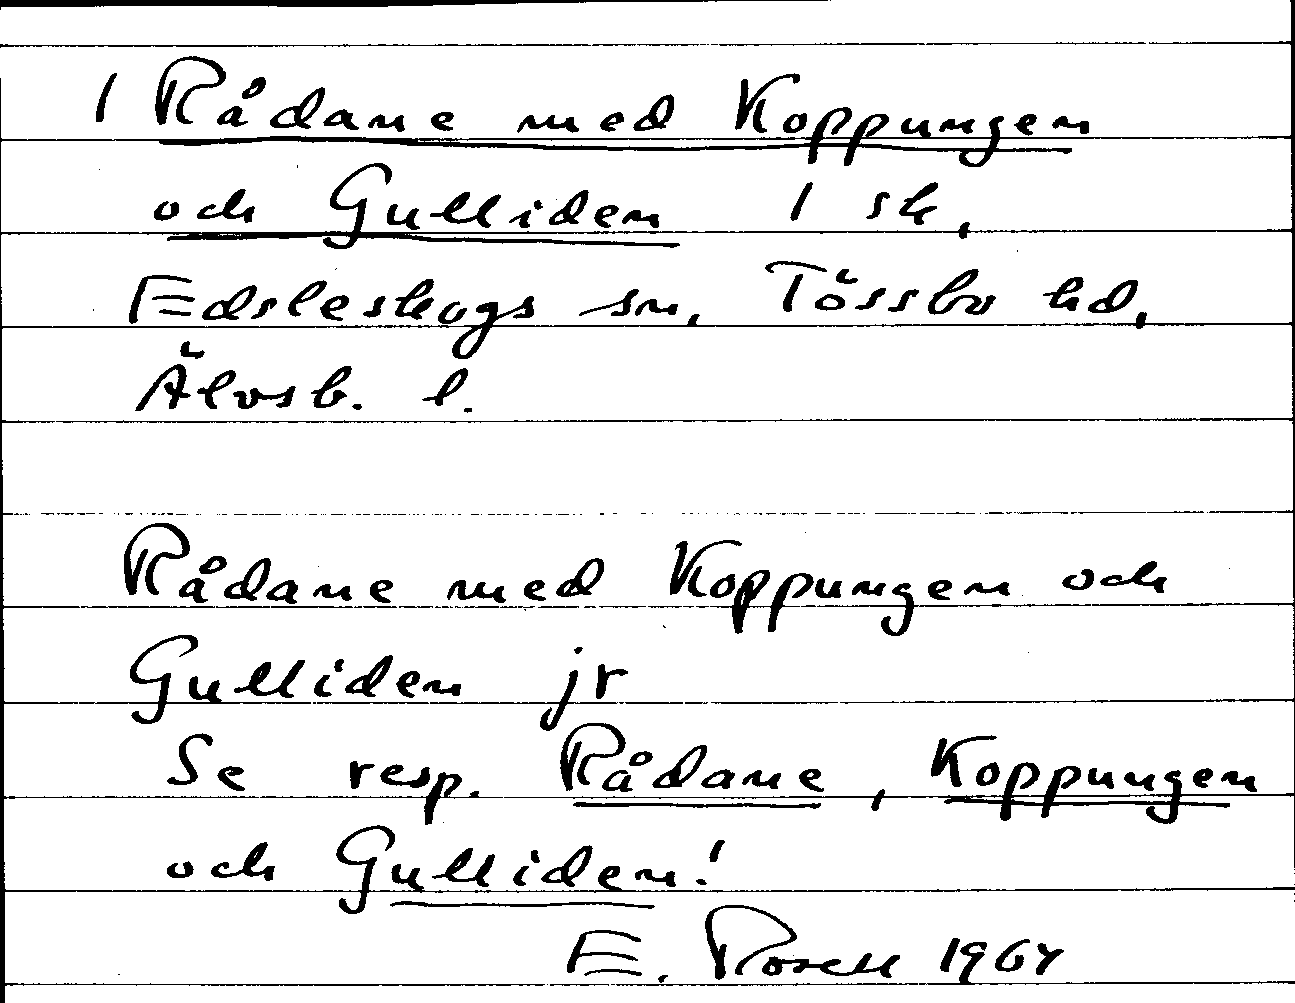 1 Rådane med Koppungen
och Gulliden 1 sk,
Edsleskogs sn, Tössbo hd,
Älvsb. l.
Rådane med Koppungen och
Gulliden jr
Se resp. Rådane, Koppungen
och Gulliden!
E. Rosell 1964